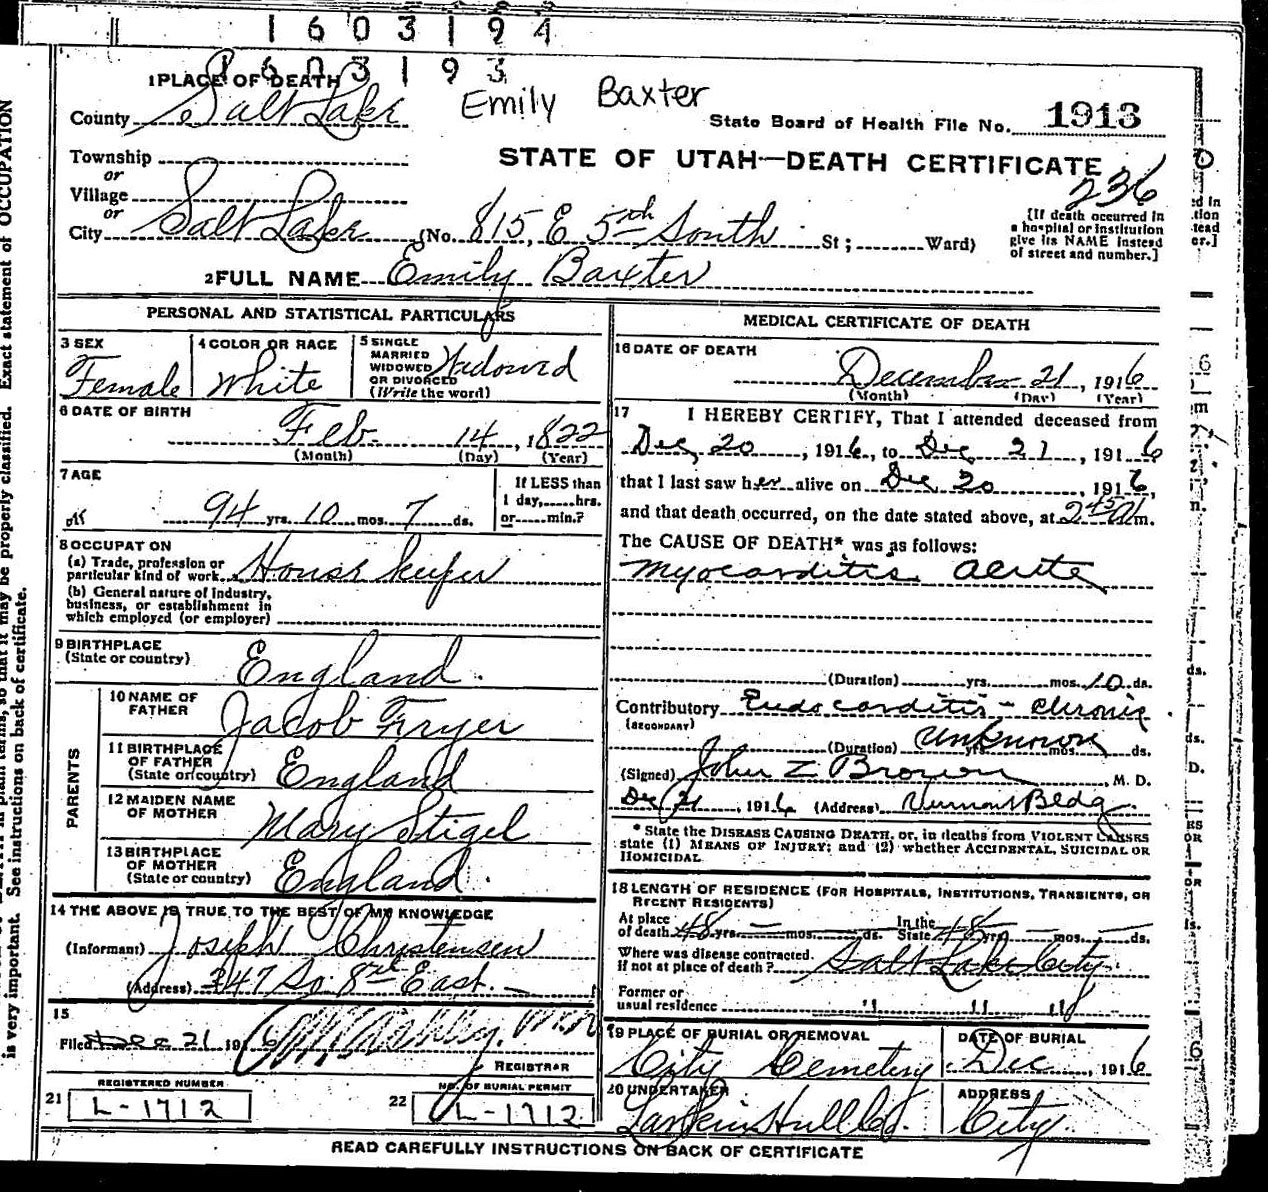 1603194
1603193
1 PLACE OF DEATH
Emily Baxter
County Salt Lake
State Board of Health File No. 1913
Township
STATE OF UTAH—DEATH CERTIFICATE
or
236
Village
or
City Salt Lake (No. 815, E 5th South St; Ward)
[If death occurred in a hospital or institution give its NAME instead of street and number.]
2 FULL NAME Emily Baxter
PERSONAL AND STATISTICAL PARTICULARS
3 SEX Female
4 COLOR OR RACE White
5 SINGLE MARRIED WIDOWED OR DIVORCED (Write the word) Widowed
6 DATE OF BIRTH
Feb 14, 1822
(Month) (Day) (Year)
7 AGE
94 yrs. 10 mos. 7 ds.
If LESS than 1 day, hrs. or min.?
8 OCCUPATION
(a) Trade, profession or particular kind of work House keeper
(b) General nature of industry, business, or establishment in which employed (or employer)
9 BIRTHPLACE
(State or country) England.
PARENTS
10 NAME OF FATHER Jacob Fryer
11 BIRTHPLACE OF FATHER (State or country) England
12 MAIDEN NAME OF MOTHER Mary Stigel
13 BIRTHPLACE OF MOTHER (State or country) England.
14 THE ABOVE IS TRUE TO THE BEST OF MY KNOWLEDGE
(Informant) Joseph Christensen
(Address) 347 So. 8th East.
15
Filed Dec 21 1916
REGISTRAR
REGISTERED NUMBER
21 L-1712
NO. OF BURIAL PERMIT
22 L-1712
MEDICAL CERTIFICATE OF DEATH
16 DATE OF DEATH
December 21, 1916
(Month) (Day) (Year)
17 I HEREBY CERTIFY, That I attended deceased from
Dec 20, 1916, to Dec 21, 1916
that I last saw her alive on Dec 20, 1916,
and that death occurred, on the date stated above, at 2 45 A m.
The CAUSE OF DEATH* was as follows:
Myocarditis. acute
(Duration) yrs. mos. 10 ds.
Contributory Endocarditis - chronic
(SECONDARY)
(Duration) unknown yrs. mos. ds.
(Signed) John Z Brown, M. D.
Dec 21, 1916 (Address) Vermont Bldg.
* State the DISEASE CAUSING DEATH, or, in deaths from VIOLENT CAUSES state (1) MEANS OF INJURY; and (2) whether ACCIDENTAL, SUICIDAL OR HOMICIDAL
18 LENGTH OF RESIDENCE (FOR HOSPITALS, INSTITUTIONS, TRANSIENTS, OR RECENT RESIDENTS)
At place of death 48 yrs. — mos. — ds. In the State 48 yrs. — mos. — ds.
Where was disease contracted. if not at place of death? Salt Lake City.
Former or usual residence " " "
19 PLACE OF BURIAL OR REMOVAL
City Cemetery
DATE OF BURIAL
Dec, 1916
20 UNDERTAKER
ADDRESS
City.
READ CAREFULLY INSTRUCTIONS ON BACK OF CERTIFICATE
so that it may be properly classified. Exact statement of OCCUPATION
is very important. See instructions on back of certificate.